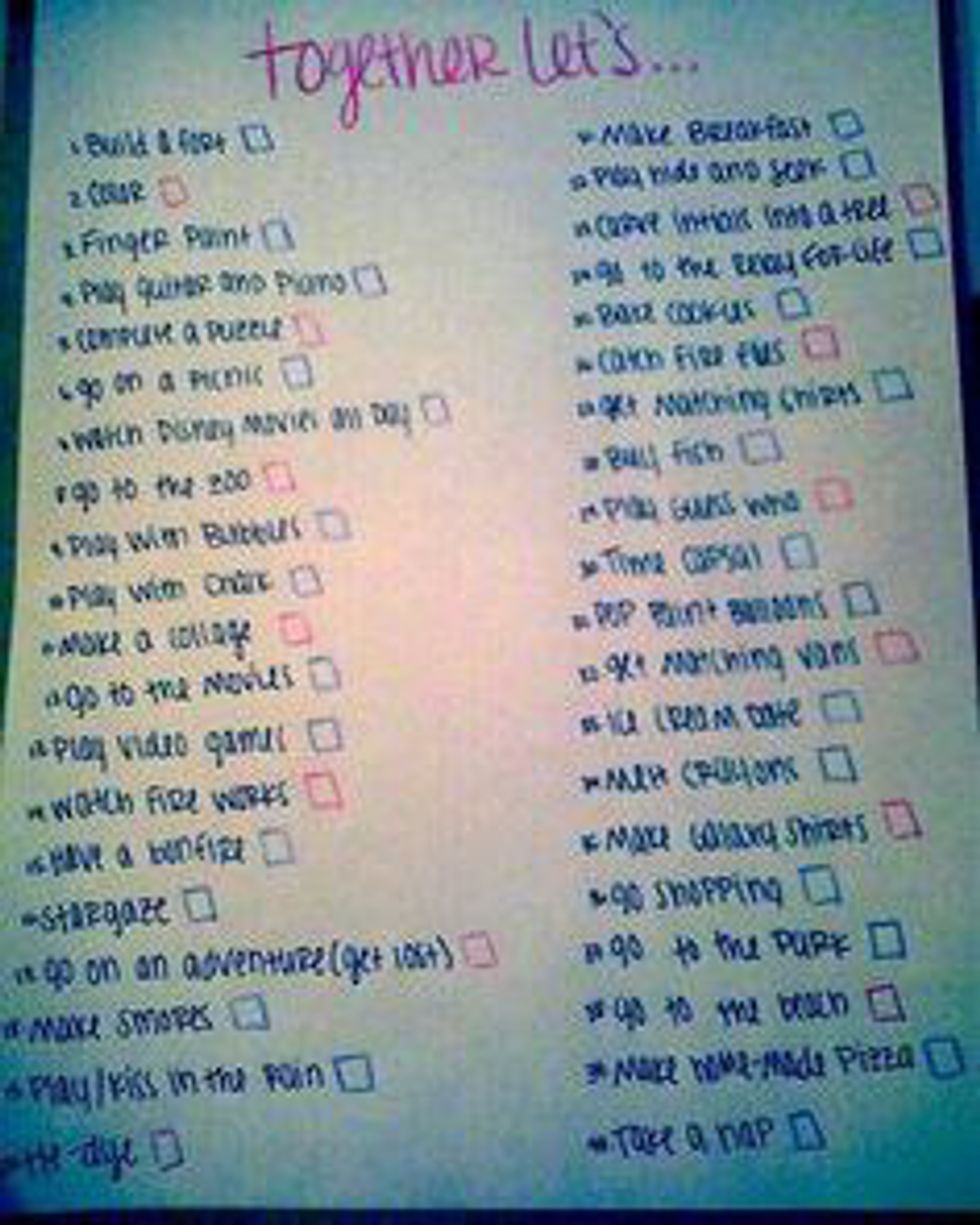 together let's...
1. Build a fort
2. Color
3. Finger Paint
4. Play guitar and Piano
5. Complete a Puzzle
6. go on a Picnic
7. Watch Disney Movies all Day
8. go to the zoo
9. Play With Bubbles
10. Play With Chalk
11. Make a collage
12. go to the Movies
13. Play video games
14. Watch fire works
15. Have a bonfire
16. Stargaze
17. go on an adventure (get lost)
18. Make Smores
19. Play/kiss in the Rain
tie-dye
Make Breakfast
Play hide and seek
Carve intials into a tree
go to the Relay For-Life
Bake cookies
Catch Fire flies
get Matching shirts
Buy fish
Play Guess who
Time Capsul
Pop Paint Balloons
get Matching vans
Ice Cream Date
Melt Crayons
Make Galaxy Shirts
go shopping
go to the Park
go to the beach
Make home-Made Pizza
Take a nap